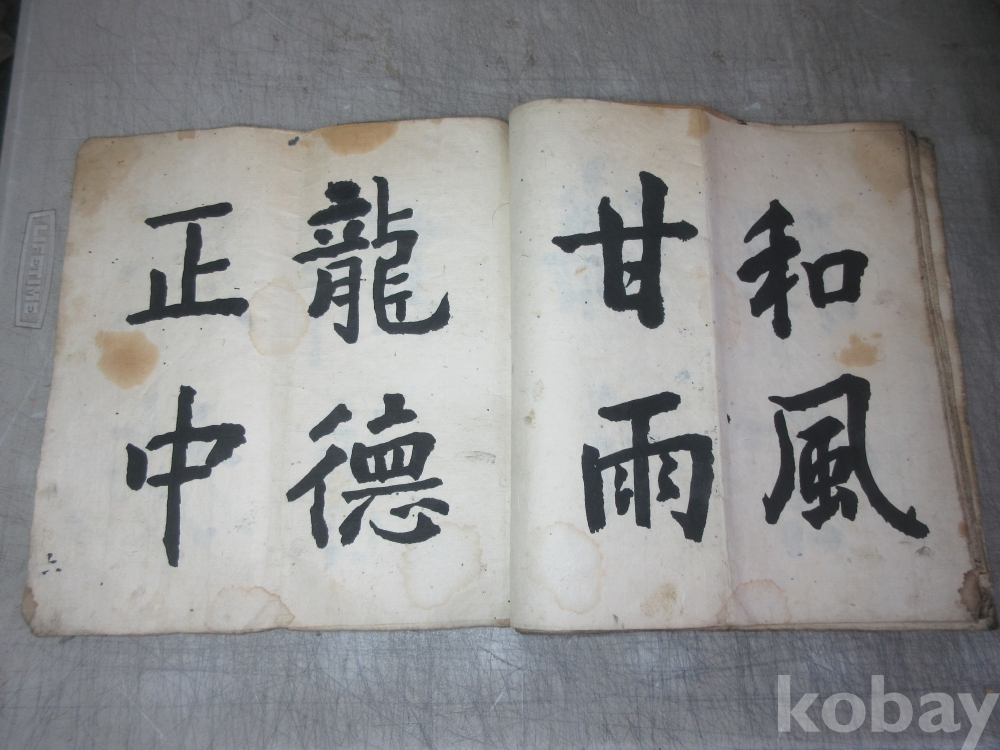 和風
甘雨
龍德
正中
LIFETIME
kobay